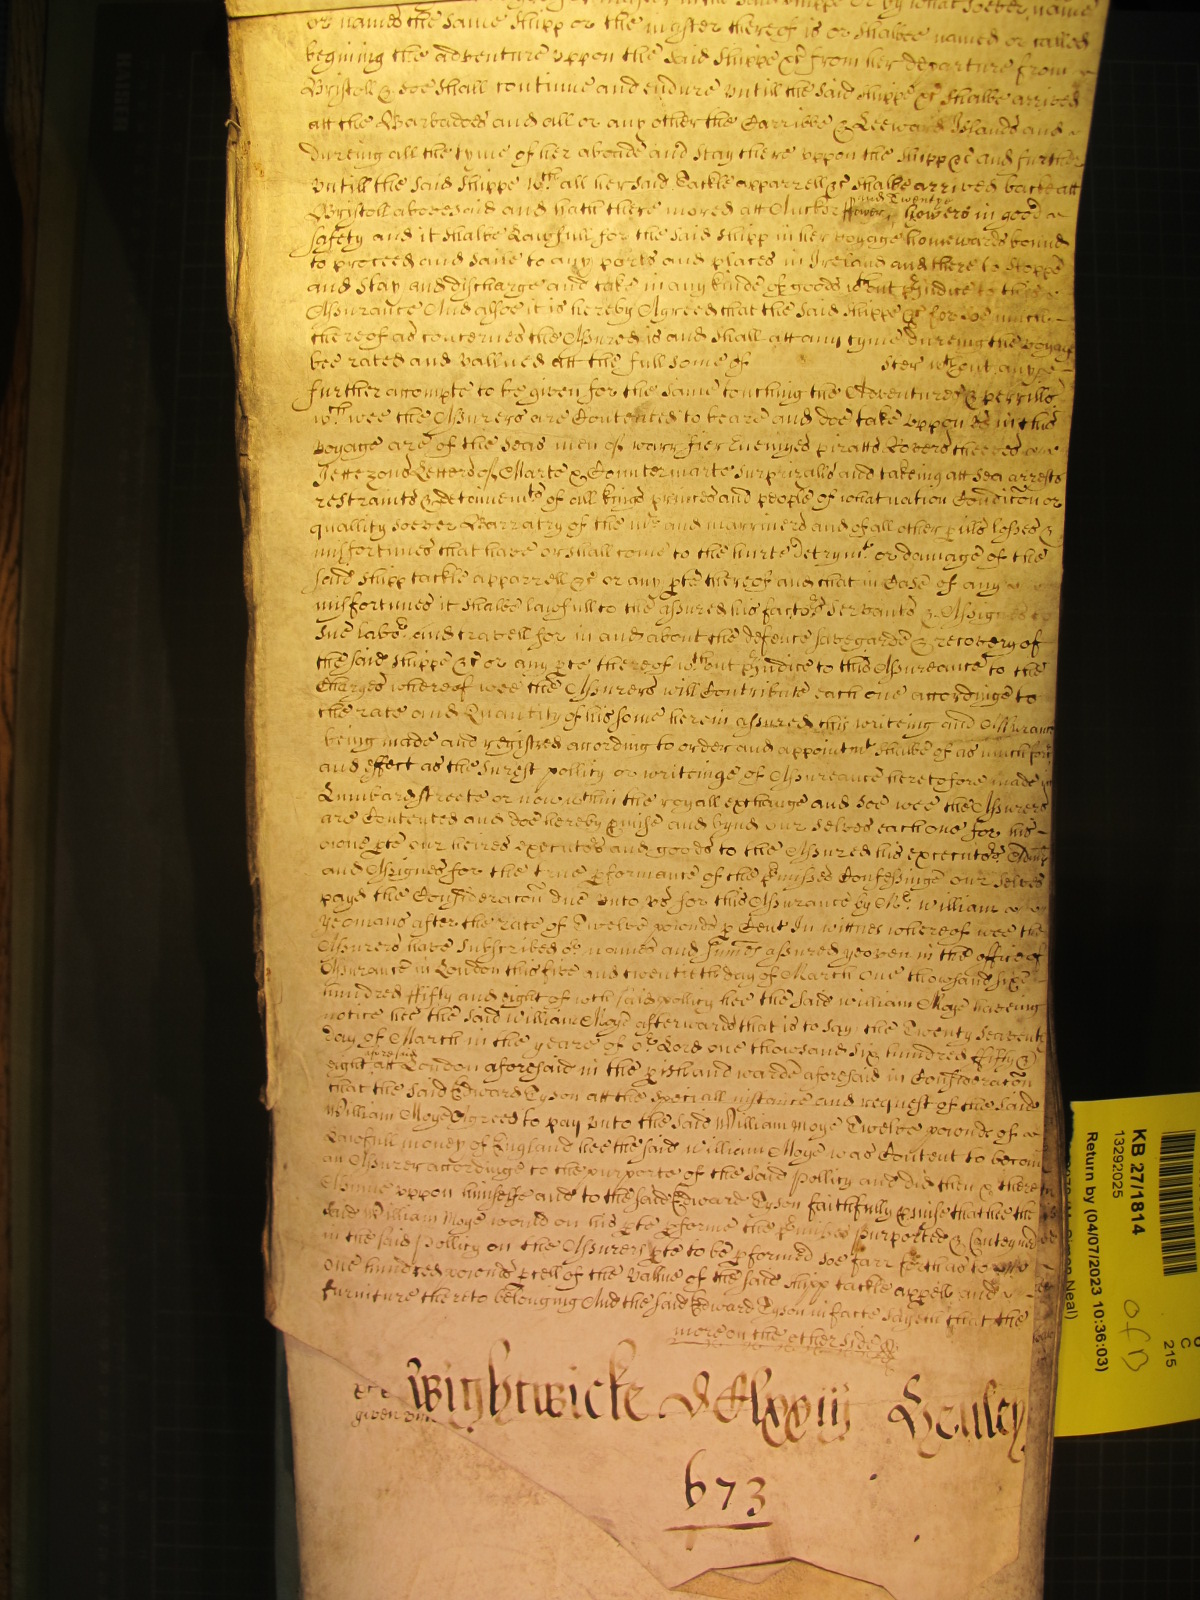 or named the same shipp or the master thereof is or shalbee named or called
begining the adventure uppon the said shippe &c from her departure from
Bristoll & soe shall continue and endure untill the said shippe &c shalbe arrived
att the Barbadoes and all or any other the Carribee & Leeward Islands and
dureing all the tyme of her aboade and stay there uppon the shipp &c and further
untill the said shippe wth all her said tackle apparrell &c shalbe arrived backe att
Bristoll abovesaid and hath there mored att Anchor fower and Twentye howers in good
safety and it shalbe Lawfull for the said shipp in her voyage homewards bound
to proceed and saile to any ports and places in Ireland and there to stoppe
and stay and discharge and take in any kinde of goods wthout piudice to this
Assurance And alsoe it is hereby Agreed that the said shippe &c for soe much
thereof as concernes the Assured is and shall att any tyme dureing the voyage
bee rated and vallued att the full some of ster wthout any
further accompte to be given for the same touching the Adventures & perrills
wch wee the Assurers are Contented to beare and doe take uppon us in this
voyage are of the seas men of warr fier Enemyes piratts Rovers theeves
Jettezons Letters of Marte & Countermarte surprizalls and takeing att sea arrests
restraints & deteinmts of all kings princes and people of what nation Condicon or
quallity soever Barratry of the mr and marriners and of all other pills losses &
misfortunes that have or shall come to the hurte detrymt or damage of the
said shipp tackle apparrell &c or any pte thereof and that in Case of any
misfortunes it shalbe lawfull to the assured his factors servants & Assignes to
sue labor and travell for in and about the defence savegarde & recovery of
the said shippe &c or any pte thereof wthout piudice to this Assureance to the
Charges whereof wee the Assurers will Contribute each one accordinge to
the rate and Quantity of his some herein assured this writeing and Assurance
being made and registred according to order and appointmt shalbe of as much force
and effect as the surest pollicy or writeinge of Assureance heretofore made in
Lumbard streete or now wthin the royall exchange and soe wee the Assurers
are Contented and doe hereby pmise and bynd our selves each one for his
owne pte our heires executors and goods to the Assured his executors Admrs
and Assignes for the true pformance of the pmisses Confessinge our selves
payd the Consideracon due unto us for this Assurance by Mr William
Yeomans after the rate of Twelve pounds p Cent In wittnes whereof wee the
Assurers have subscribed or names and summes assured yeoven in the office of
Assurance in London this five and twentith day of March one thousand six
hundred fifty and eight of wch said pollicy hee the said William Moye haveing
notice hee the said William Moye afterwards that is to say the Twenty Seaventh
day of March in the yeare of or Lord one thousand six hundred fifty &
eight aforesaid att London aforesaid in the pish and warde aforesaid in Consideracon
that the said Edward Tyson att the speciall instance and request of the said
William Moye Agreed to pay unto the said William Moye Twelve pounds of
Lawfull money of England hee the said William Moye was Content to become
an Assurer accordinge to the purporte of the said pollicy and did then & there
Assume uppon himselfe and to the said Edward Tyson faithfully pmise that hee the
said William Moye would on his pte pforme the pmisses purported & Conteyned
in the said pollicy on the Assurers pte to be pformed soe farr forth as to
one hundred pounds pcell of the vallue of the said shipp tackle appell and
furniture thereto belonging And the said Edward Tyson in facte sayeth that the
more on the other side
Wightwicke DClxxiij Henley
given
673
KB 27/1814
13292025
Return by (04/07/2023 10:36:03)
Neal)
C
215